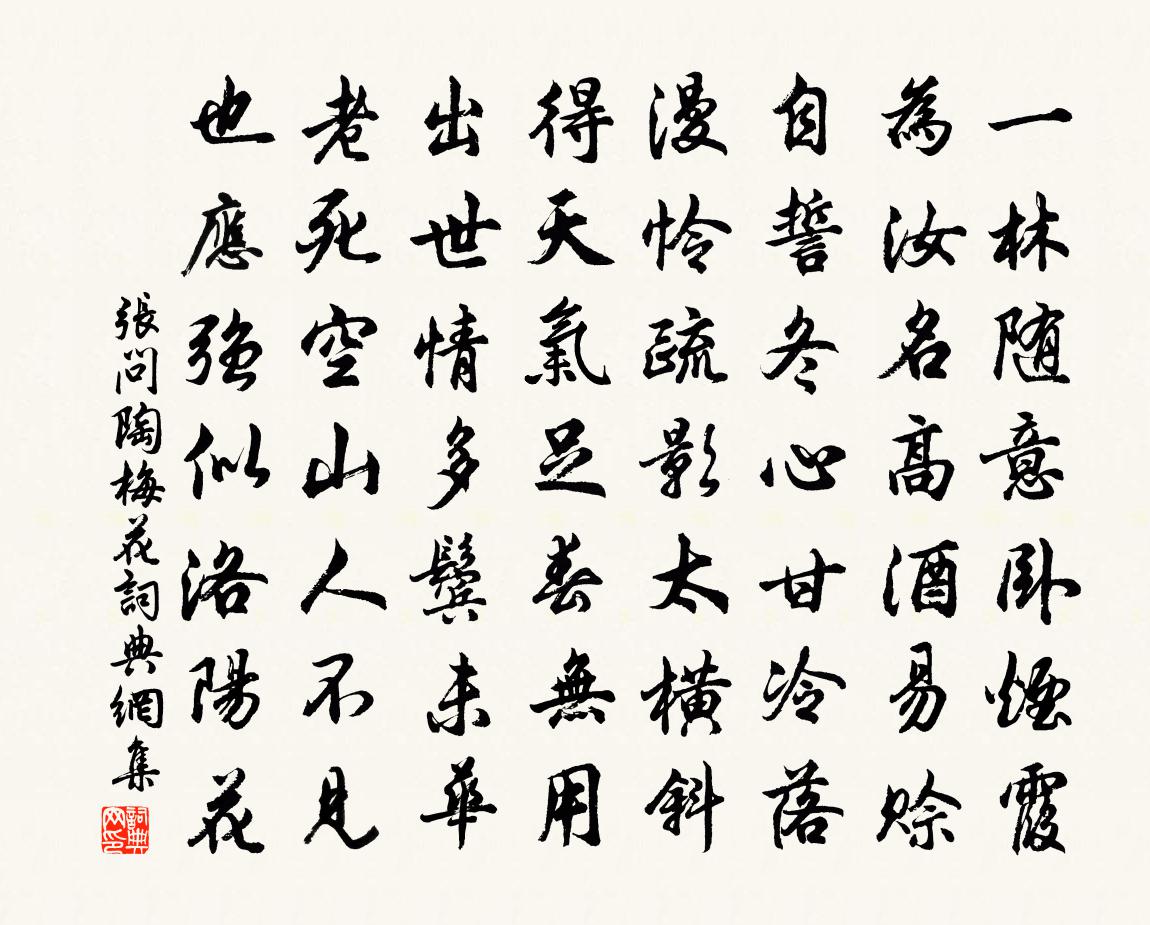 一林随意卧煙霞
為汝名高酒易赊
自誓冬心甘冷落
漫怜疏影太横斜
得天氣足春無用
出世情多鬓未華
老死空山人不見
也應强似洛陽花
張問陶梅花詞典網集
詞典網印